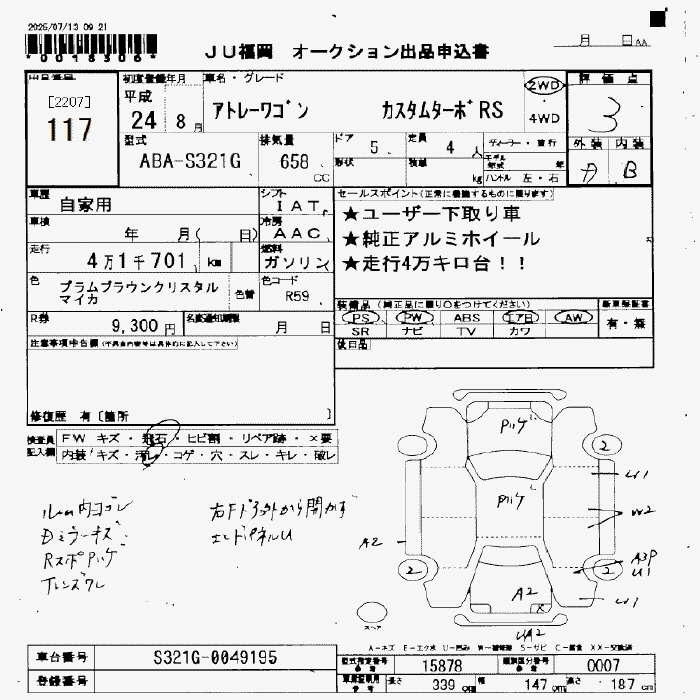 2025/07/13 09 21
*0018306*
JU福岡 オークション出品申込書
月 日 AA
出品番号
[2207]
117
初度登録年月
平成
24 8 月
車名・グレード
アトレーワゴン カスタムターボRS
2WD
4WD
評価点
3
外装 内装
B
型式
ABA-S321G
排気量
658 cc
ドア 5
定員 4 人
形状
積載 kg
ディーラー・並行
モデル年式 年
ハンドル 左・右
車歴
自家用
シフト
IAT
車検
年 月( 日)
冷房
AAC
走行
4万1千701 km
燃料
ガソリン
色
プラムブラウンクリスタル
マイカ
色替
色コード
R59
R券
9,300円
名変通知期限
月 日
セールスポイント(正常に機能するものに限ります)
★ユーザー下取り車
★純正アルミホイール
★走行4万キロ台!!
装備品(純正品に限り○をつけてください)
PS PW ABS エアB AW
SR ナビ TV カワ
新車保証書
有・無
後日品
注意事項申告欄(不具合内容等は具体的に記入して下さい)
修復歴 有〔箇所 〕
検査員
記入欄
FW キズ・飛石・ヒビ割・リペア跡・×要
内装 キズ・汚レ・コゲ・穴・スレ・キレ・破レ
ルーム内ヨゴレ
Dミラーキズ
右Fドア外から開かず
エンドパネルU
A2
2
2
2
W2
A3P
U1
A2
X
スペア
A-キズ E-エクボ U-凹み W-補修跡 S-サビ C-腐食 XX-交換済
車台番号
S321G-0049195
登録番号
型式指定番号
参考
15878
類別区分番号
参考
0007
車検証明用
参考
長さ 339 cm
幅 147 cm
高さ 187 cm